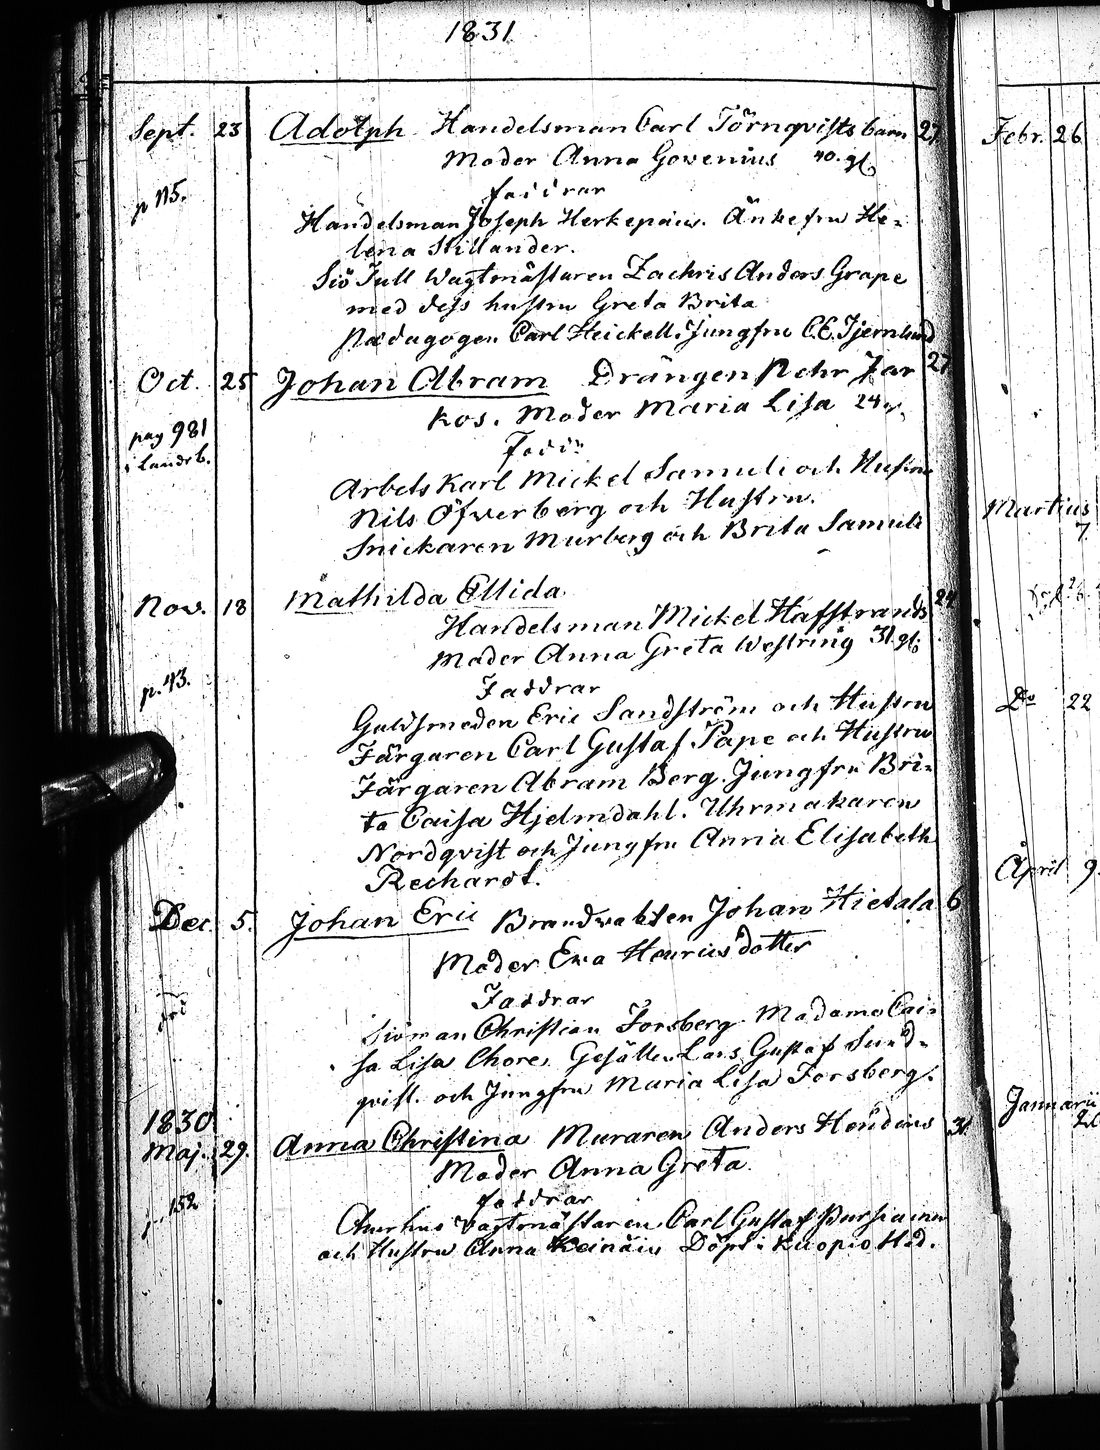 1831
Sept. 23 Adolph Handelsman Carl Törnqvists barn 27
Moder Anna Govenius 40. gl
p 115.
faddrar
Handelsman Joseph Herkepaius. Änkefru He-
lena Stillander.
Siö Tull Wagtmästaren Zachris Anders Grape
med dess hustru Greta Brita
Pædagogen Carl Heickell. Jungfru C.E. Tjernlund
Oct. 25 Johan Abram Drängen Pehr Jar 27
kos. Moder Maria Lisa 24
pag 981
i Landsb.
Fadd
Arbetskarl Mickel Samuli och Hustru
Nils Öfverberg och Hustru.
Snickaren Murberg och Brita Samuli
Nov. 18 Mathilda Ellida 24
Handelsman Mickel Hafstrands
Moder Anna Greta Westring 31 gl
p. 43.
Faddrar
Guldsmeden Eric Sandström och Hustru
Färgaren Carl Gustaf Pape och Hustru
Färgaren Abram Berg. Jungfru Bri-
ta Caisa Hjelmdahl. Uhrmakaren
Nordqvist och Jungfru Anna Elisabeth
Rechardt.
Dec. 5. Johan Eric Brandvakten Johan Hietala 6
Moder Ewa Henricsdotter
Faddrar
Siöman Christian Forsberg Madame Cai-
sa Lisa Chore. Gesällen Lars Gustaf Sund-
qvist. och Jungfru Maria Lisa Forsberg.
1830
Maj. 29. Anna Christina Muraren Anders 31.
Moder Anna Greta.
152
faddrar
Vagtmästaren Carl Gustaf
och Hustru Anna Döpt i Kuopio Stad.
Febr. 26
Martius
7
Do 22
April 9.
Januarii